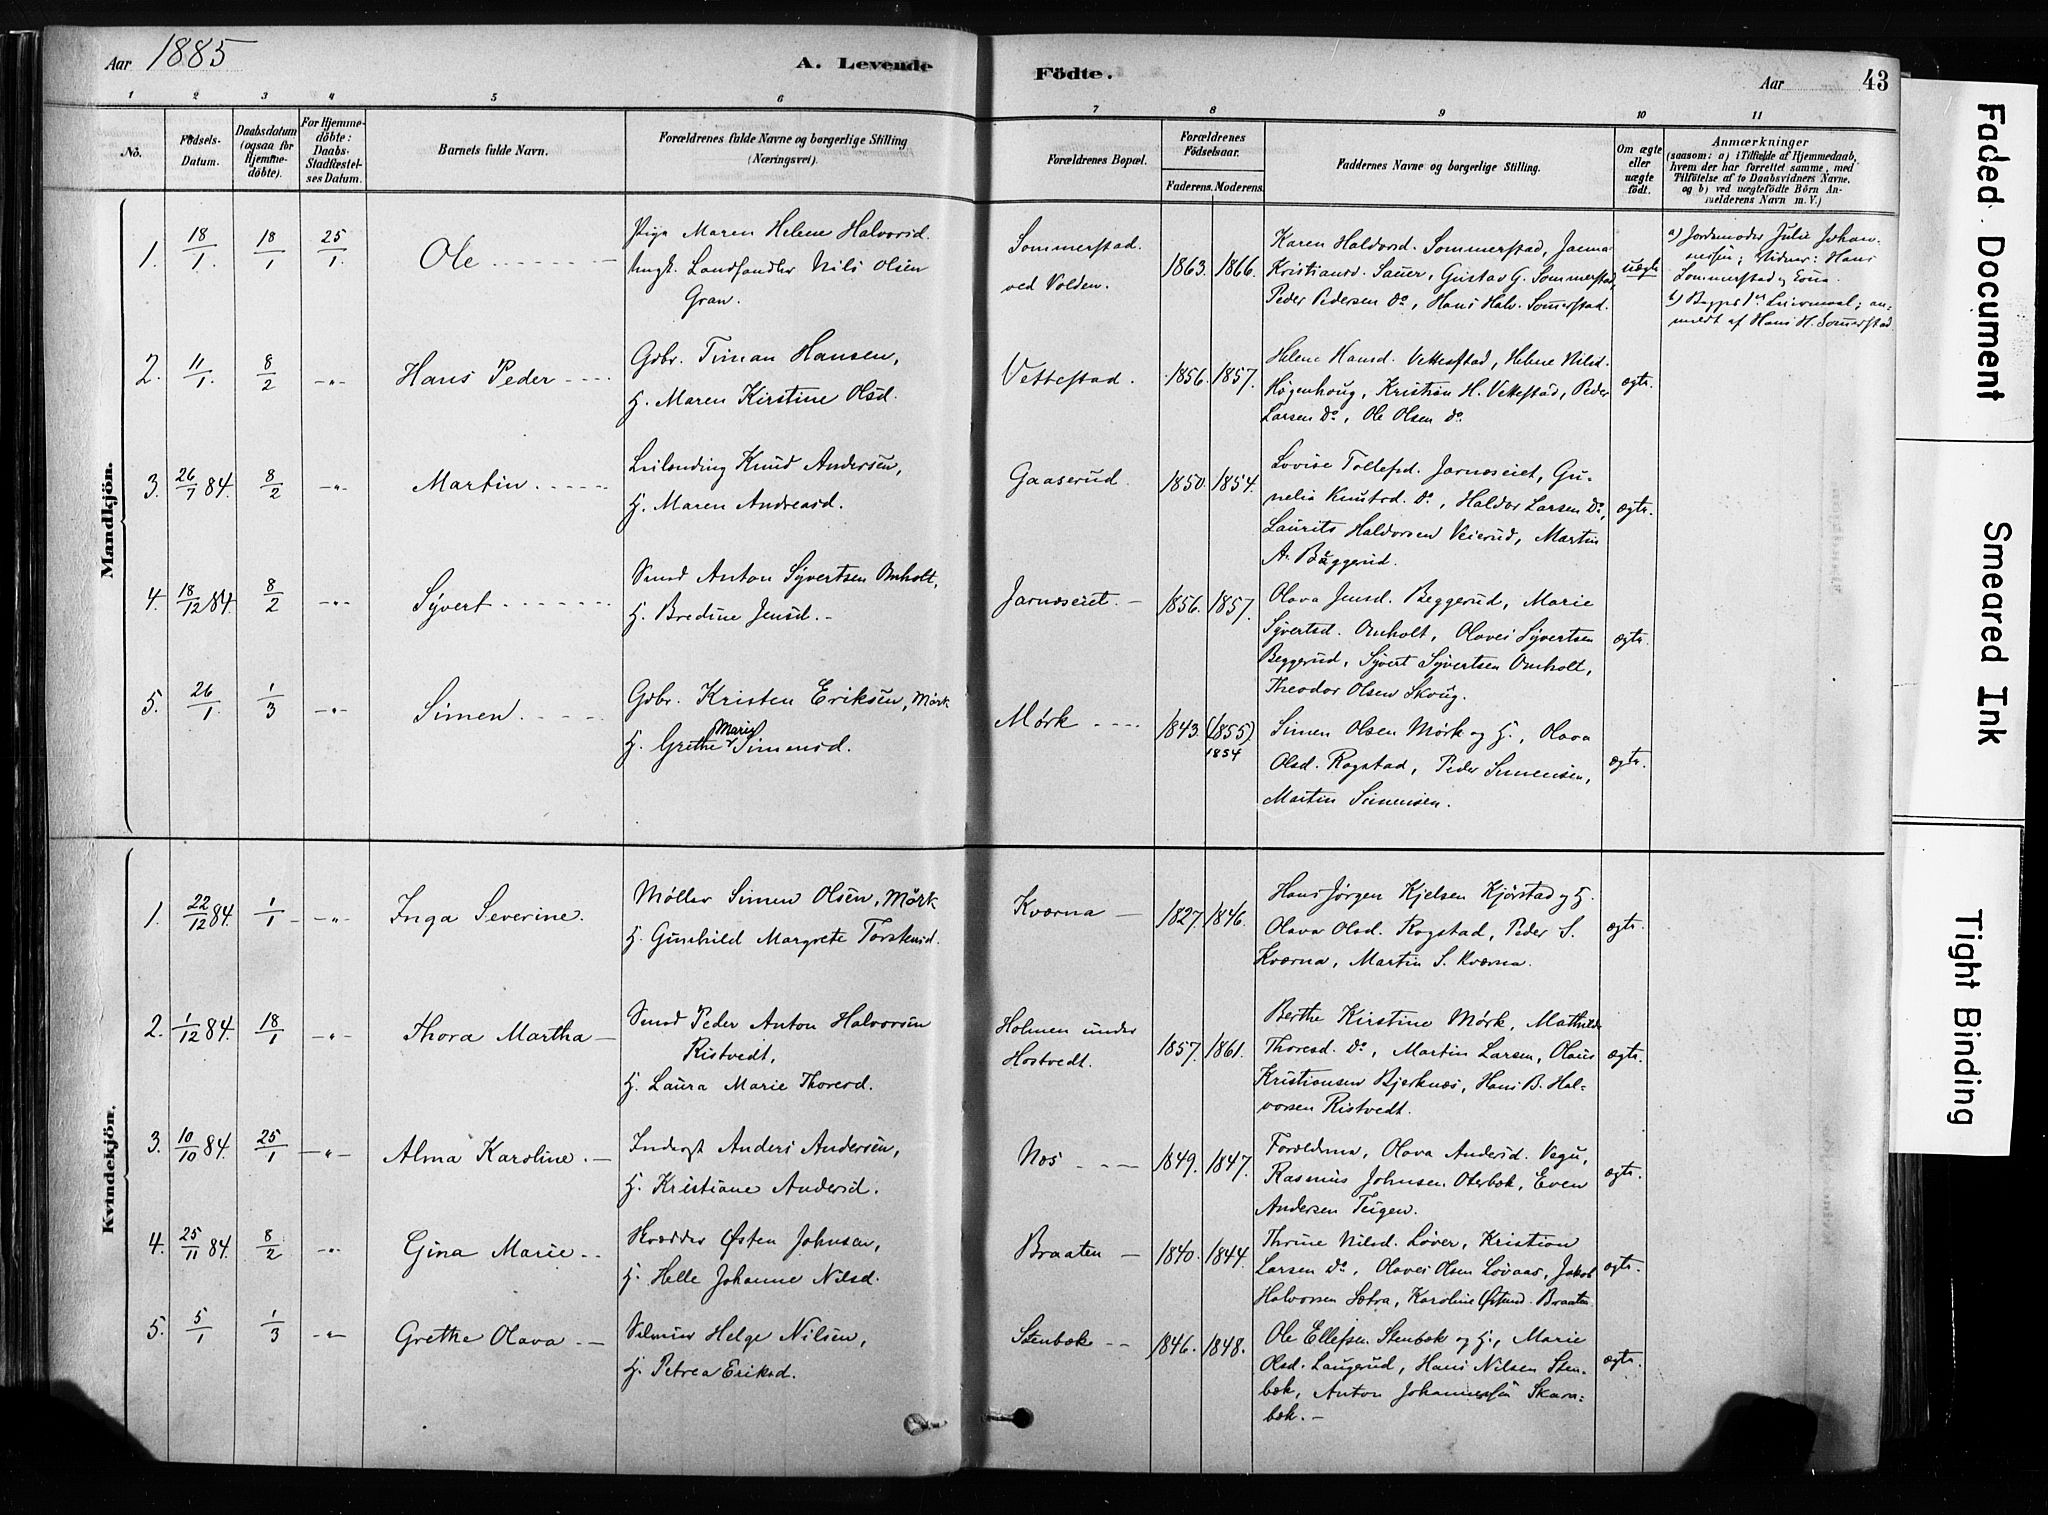 Aar 1885
A. Levende Födte.
Aar
43
1 2 3 4 5 6 7 8 9 10 11
No.
Fødsels-
Datum.
Daabsdatum
(ogsaa for
Hjemme-
döbte).
For Hjemme-
döbte:
Daabs-
Stadfæstel-
ses Datum.
Barnets fulde Navn.
Forældrenes fulde Navne og borgerlige Stilling
(Næringsvei).
Forældrenes Bopæl.
Forældrenes
Födselsaar.
Faderens. Moderens.
Faddernes Navne og borgerlige Stilling.
Om ægte
eller
uægte
født.
Anmærkninger
(saasom: a) i Tilfælde af Hjemmedaab,
hvem der har forrettet samme, med
Tilføielse af to Daabsvidners Navne,
og b) ved uægtefödte Börn An-
melderens Navn m. V.)
Mandkjön.
1. 18/1. 18/1 25/1. Ole
Pige Maren Helene Halvorsd.
Ungk. Landhandler Nils Olsen
Gran.
Sommerstad
ved Volden.
1863. 1866.
Karen Haldorsd. Sommerstad,
Kristiansd. Sauer, Gustav G. Sommerstad,
Peder Pedersen Do, Hans Halv. Somerstad.
uægte
a) Jordemoder Julie Johan-
nesen; Vidner: Hans
Sommerstad og Kona.
anmeldt af Hans H. Somerstad
2. 11/1. 8/2 -„- Hans Peder
Gdbr. Timan Hansen,
H. Maren Kirstine Olsd.
Vettestad.
1856. 1857.
Helene Hansd. Vettestad, Helene Nilsd.
Högenhoug, Kristian H. Vettestad, Peder
Larsen Do, Ole Olsen do
ægte.
3. 26/7 84. 8/2 -„- Martin
Leilending Knud Andersen,
H. Maren Andreasd.
Gaaserud.
1850. 1854.
Lovise Tollefsd. Jarnæseiet, Gu-
nelia Knutsd. Do, Haldor Larsen Do,
Laurits Haldorsen Veierud, Martin
A. Buggerud.
ægte.
4. 18/12 84. 8/2 -„- Syvert
Anton Syvertsen Omholt,
H. Bredine Jensd.
Jarnæseiet.
1856. 1857.
Olava Jensd. Beggerud, Marie
Syvertsd. Omholt, Olavei Syvertsen
Beggerud, Syvert Syvertsen Omholt,
Theodor Olsen Skoug.
ægte.
5. 26/1. 1/3 -„- Simen
Gdbr. Kristen Eriksen, Mørk
H. Grethe Marie Simensd.
Mørk
1843. (1855) 1854
Simen Olsen Mørk og H., Olava
Olsd. Rogstad, Peder Simensen,
Martin Simensen.
ægte.
Kvindekjön.
1. 22/12 84. 1/1 -„- Inga Severine.
Møller Simen Olsen, Mörk
H. Gunhild Margrete Torstensd.
Kværna
1827. 1846.
Hans Jørgen Kjelsen Kjörstad og H.
Olava Olsd. Rogstad, Peder S.
Kværna, Martin S. Kværna.
ægte.
2. 1/12 84. 18/1 -„- Thora Martha
Peder Anton Halvorsen
Ristvedt,
H. Laura Marie Thoresd.
Holmen under
Hostvedt.
1857. 1861.
Berthe Kirstine Mörk, Mathilde
Thoresd. Do, Martin Larsen, Olaus
Kristiansen Bjerknæs, Hans B. Hal-
vorsen Ristvedt.
ægte.
3. 10/10 84. 25/1 -„- Alma Karoline.
Anders Andersen,
H. Kristiane Andersd.
Næs
1849. 1847.
Forældrene, Olava Andersd. Vegu,
Rasmus Johnsen Oterbæk, Even
Andersen Teigen.
ægte.
4. 25/11 84. 8/2 -„- Gina Marie
Skrædder Østen Johnsen,
H. Helle Johanne Nilsd.
Braaten
1840. 1844.
Thrine Nilsd. Løver, Kristian
Larsen Do, Olaves Olsen Løvaas, Jakob
Halvorsen Sætra, Karoline Østensd. Braaten.
ægte.
5. 5/1 1/3 -„- Grethe Olava
Helge Nilsen,
H. Petrea Eriksd.
Stenbæk
1846. 1848.
Ole Ellefsen Stenbæk og H., Marie
Olsd. Laugerud, Hans Nilsen Sten-
bæk, Anton Johannessen Skarn-
bæk.
ægte.
Faded Document
Smeared Ink
Tight Binding